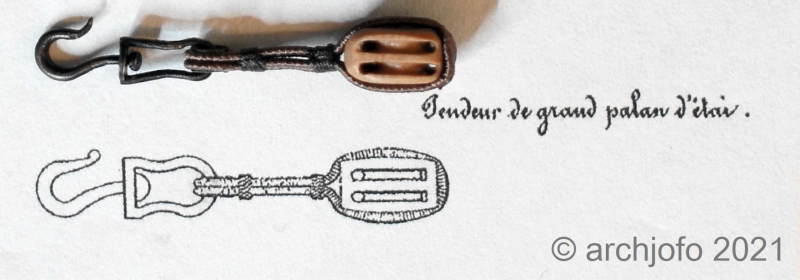 Tendeur de grand palan d'étai.
© archjofo 2021